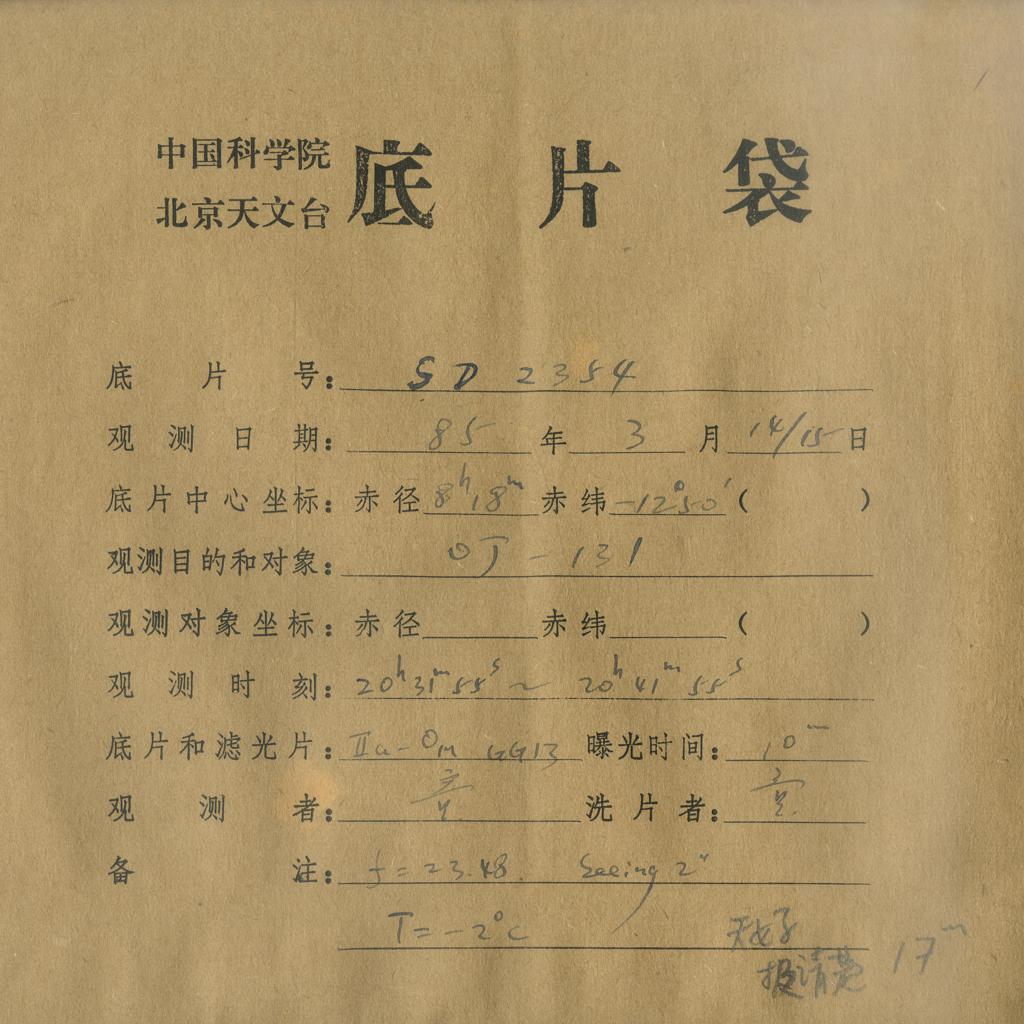 中国科学院
北京天文台
底片袋
底片号: SD 2354
观测日期: 85 年 3 月 14/15 日
底片中心坐标: 赤径 8h18m 赤纬 -12°50′ ( )
观测目的和对象: OJ-131
观测对象坐标: 赤径 赤纬 ( )
观测时刻: 20h31m55s ~ 20h41m55s
底片和滤光片: IIa-O GG13 曝光时间: 10m
观测者: 洗片者:
备注: f=23.48. Seeing 2″
T=-2°C
17m